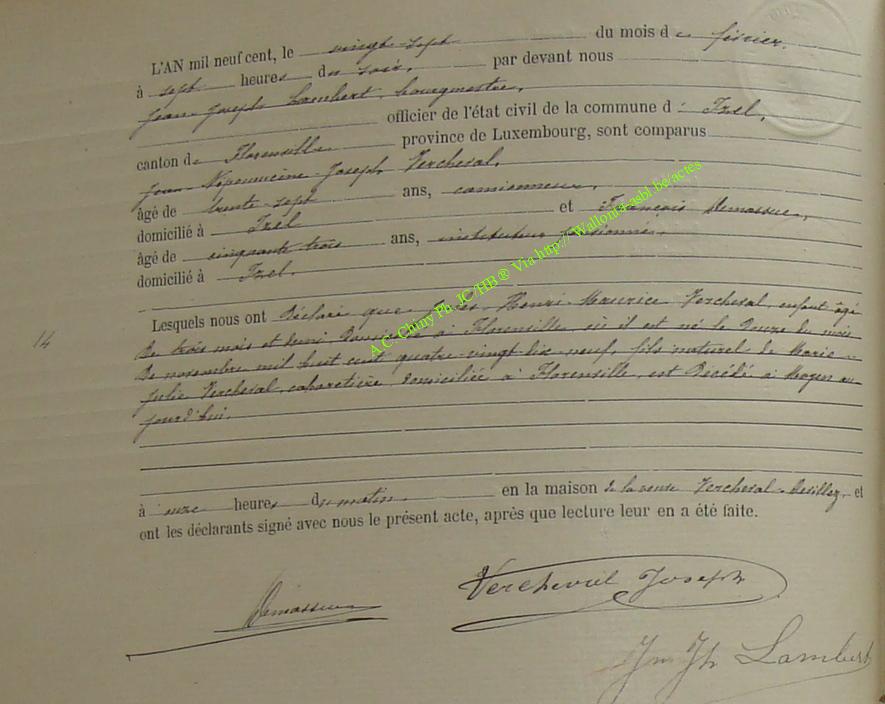 L'AN mil neuf cent, le vingt sept du mois de février,
à sept heures du soir, par devant nous
Jean Joseph Lambert, bourgmestre,
officier de l'état civil de la commune d' Izel,
canton de Florenville province de Luxembourg, sont comparus
Jean Népomucène Joseph Vercheval,
âgé de trente-sept ans, camionneur,
domicilié à Izel et François Demasseur,
âgé de cinquante trois ans, instituteur pensionné,
domicilié à Izel.
Lesquels nous ont déclaré que Henri Maurice Vercheval, enfant âgé
14
de trois mois et demi domicilié à Florenville où il est né le douze du mois
de novembre mil huit cent quatre-vingt-dix-neuf, fils naturel de Marie
Julie Vercheval, cabaretière domiciliée à Florenville, est décédé à Moyen au-
jourd'hui.
à onze heures du matin. en la maison de la veuve Vercheval-Desillez, et
ont les déclarants signé avec nous le présent acte, après que lecture leur en a été faite.
Demasseur
Vercheval Joseph
Jn Jh Lambert
A.C. Chiny Ph. JC/HB ® Via http://Wallonia-asbl.be/actes